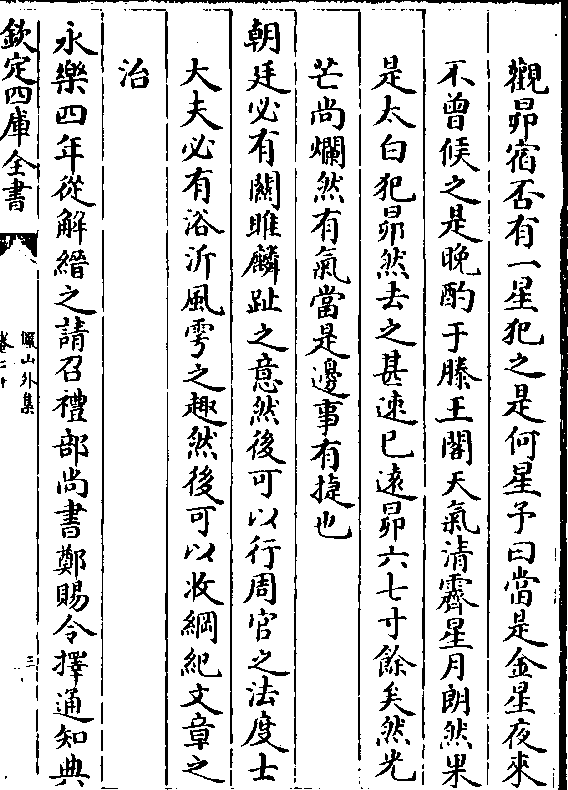 觀昴宿否有一星犯之是何星予曰當是金星夜來
不曾候之是晚酌于滕王閣天氣清霽星月朗然果
是太白犯昴然去之甚速已遠昴六七寸餘矣然光
芒尚爛然有氣當是邊事有捷也
朝廷必有關雎麟趾之意然後可以行周官之法度士
大夫必有浴沂風雩之趣然後可以收綱紀文章之
治
永樂四年從解縉之請召禮部尚書鄭賜令擇通知典
欽定四庫全書
儼山外集
卷七
三